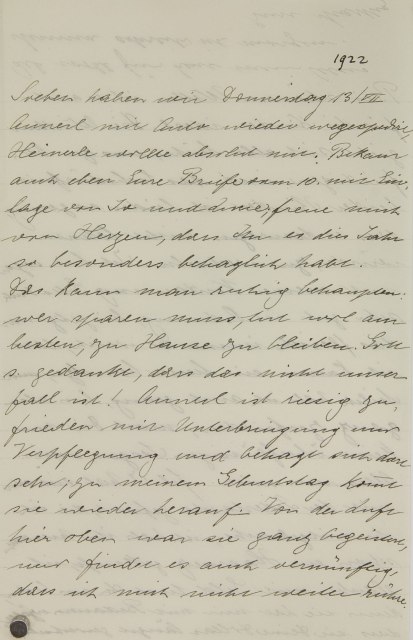 1922
Soeben haben wir Donnerstag 13/VII
Annerl mit Auto wieder wegexpedirt,
Heinerle wollte absolut mit. Bekam
auch eben Eure Briefe vom 10. mit Ein-
lage von und freue mich
von Herzen, dass Ihr es dies Jahr
so besonders behaglich habt.
Das kann man ruhig behaupten:
wer sparen muss, tut wol am
besten, zu Hause zu bleiben. Gott
s. gedankt, dass das nicht unser
fall ist! Annerl ist riesig zu-
frieden mit Unterbringung und
Verpflegung und behagt sich dort
sehr; zu meinem Geburtstag kommt
sie wieder herauf. Von der Luft
hier oben war sie ganz begeistert,
und findet es auch vernünftig,
dass ich mich nicht weiter rühre,